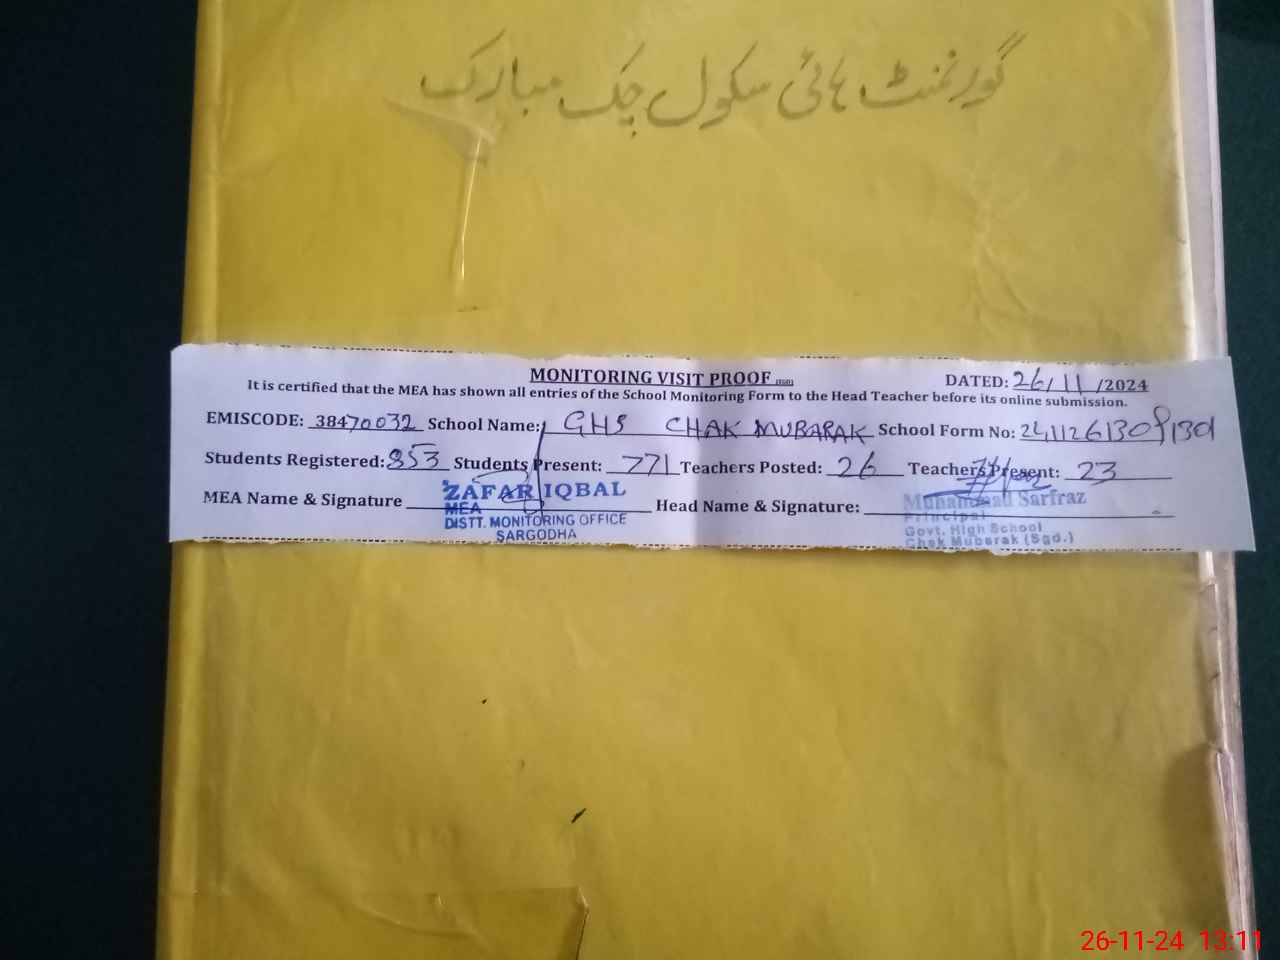 گورنمنٹ ہائی سکول چک مبارک
MONITORING VISIT PROOF
DATED: 26/11/2024
It is certified that the MEA has shown all entries of the School Monitoring Form to the Head Teacher before its online submission.
EMISCODE: 38470032 School Name: GHS CHAK MUBARAK School Form No:
Students Registered: 853 Students Present: 771 Teachers Posted: 26 Teachers Present: 23
MEA Name & Signature ZAFAR IQBAL Head Name & Signature: Muhammad Sarfraz
MEA
DISTT. MONITORING OFFICE
SARGODHA
Principal
Govt. High School
Chak Mubarak (Sgd.)
26-11-24 13:11